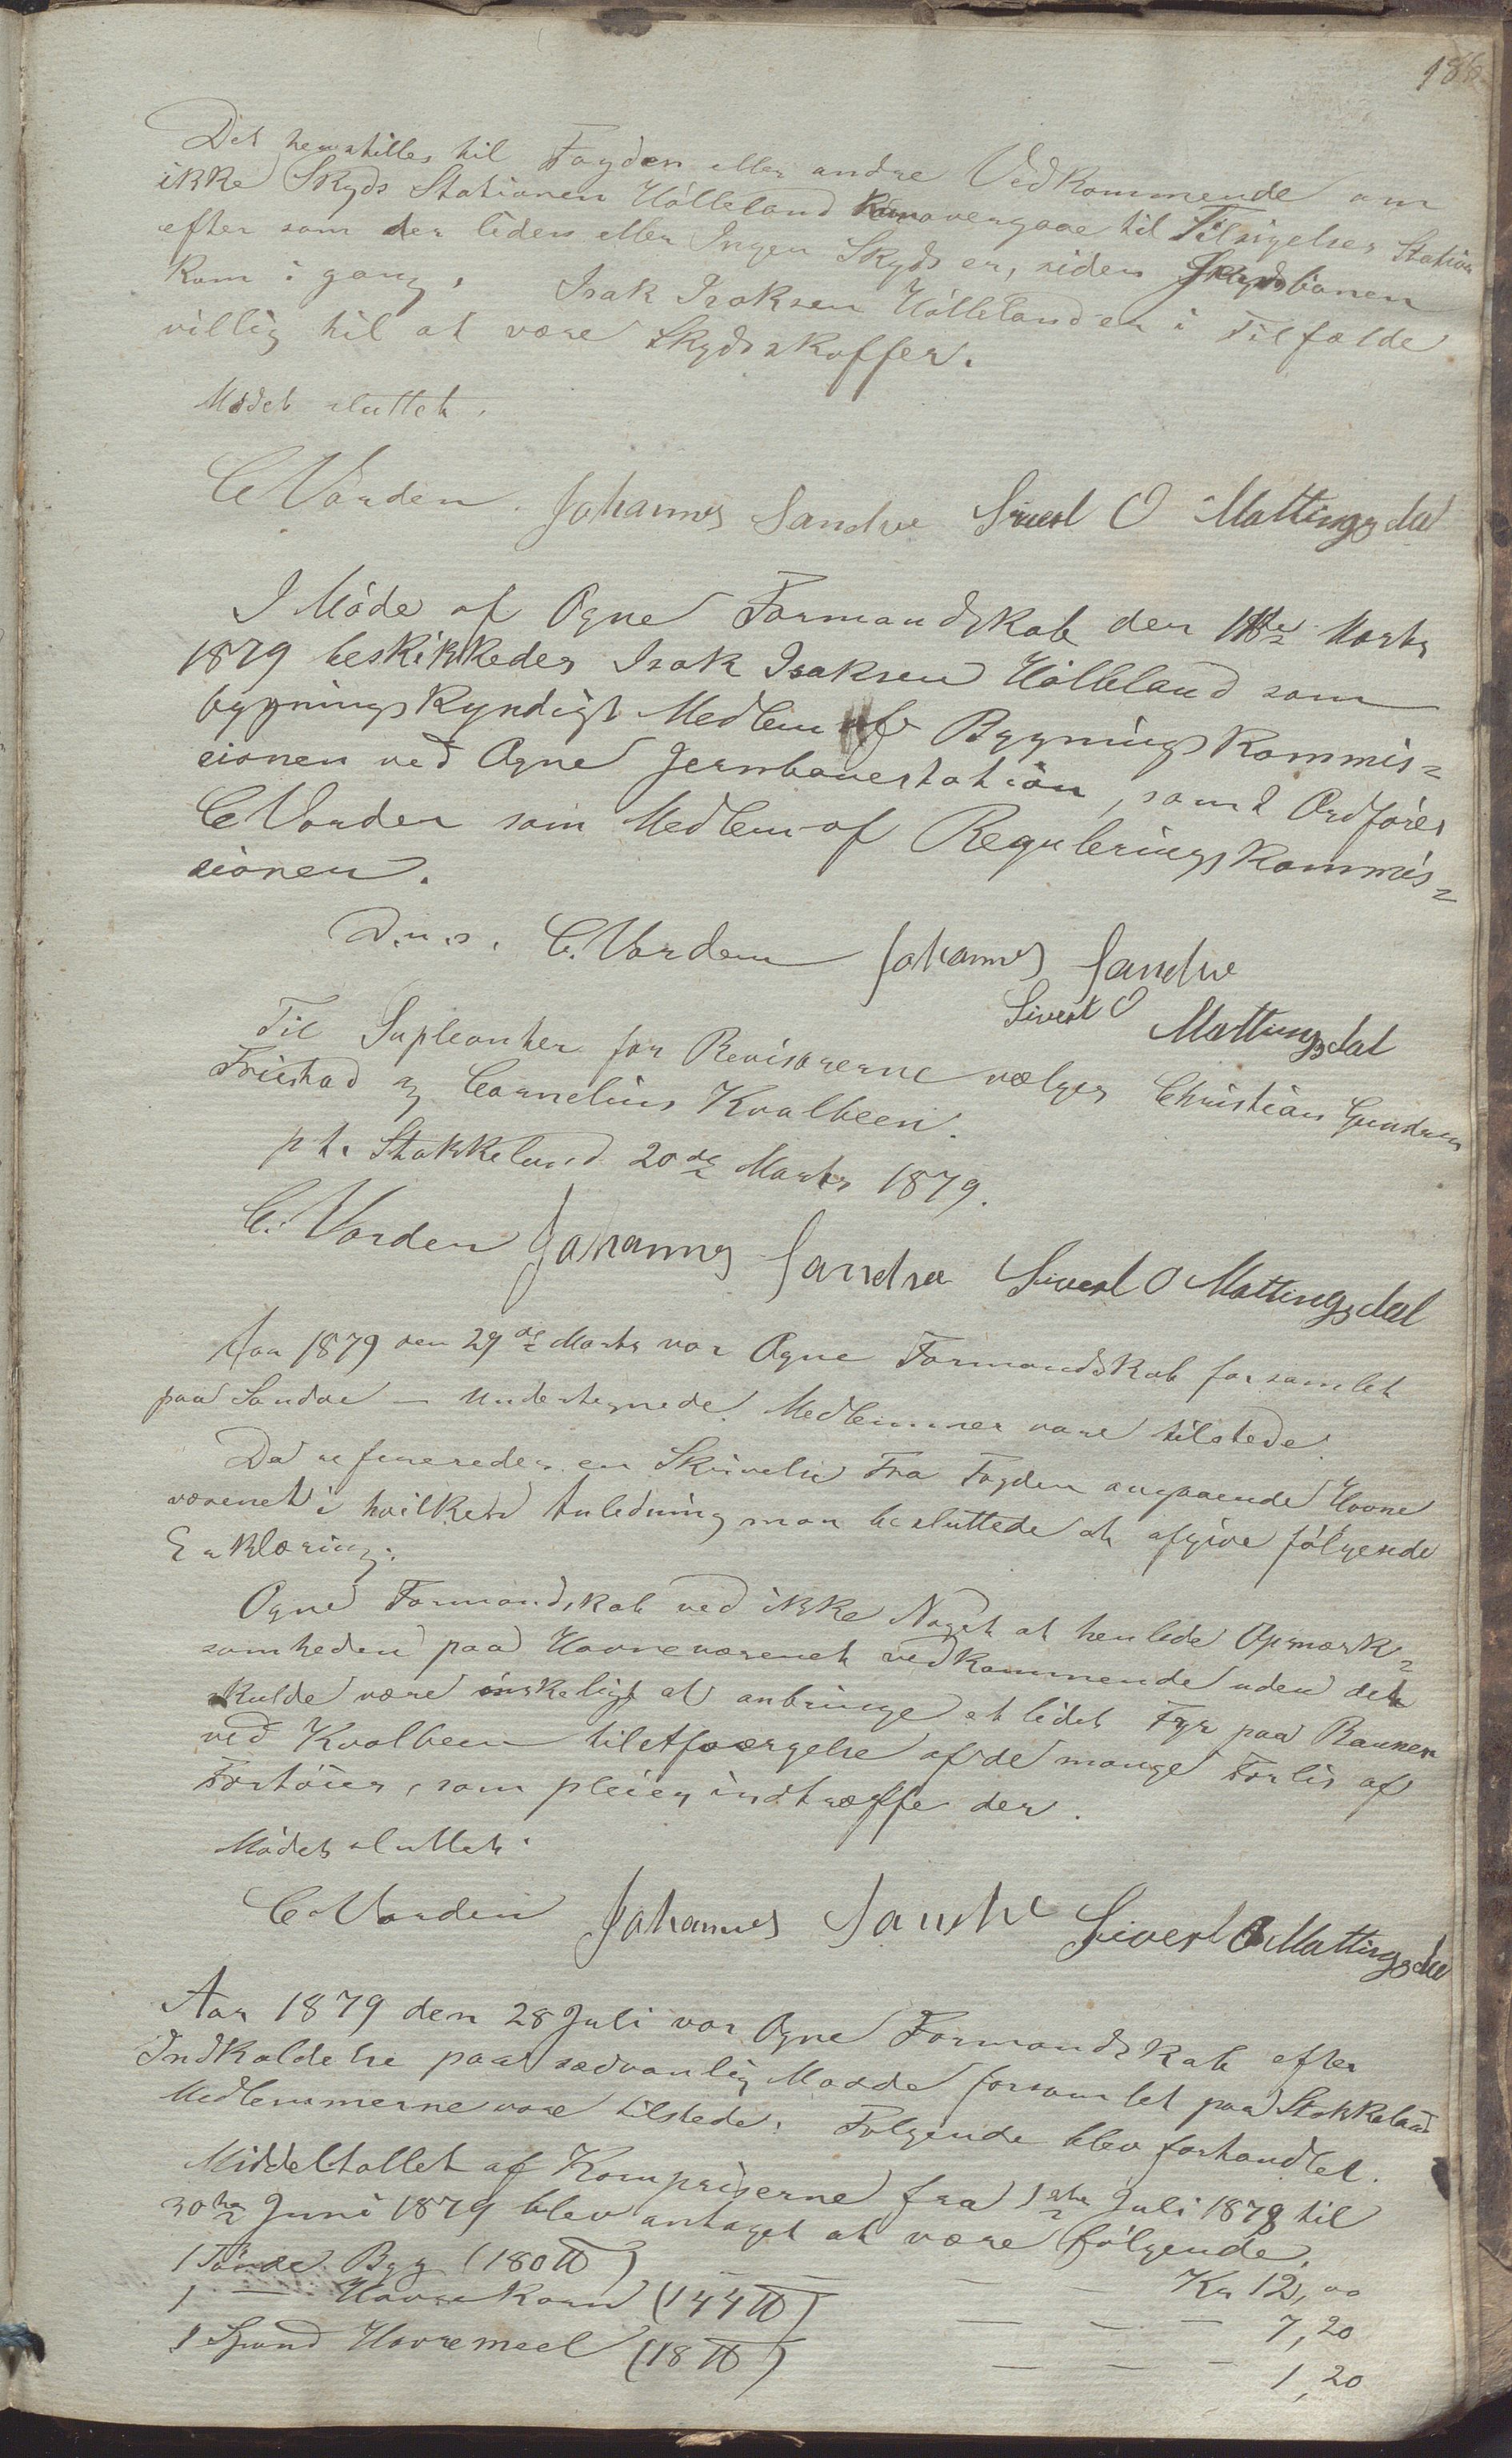 Det henstilles til Fogden eller andre Vedkommende om
ikke Skyds Stationen Hölleland kan overgaae til Tilsigelses Station
efter som der liden eller Ingen Skyds er, siden Jernbanen
kom i gang. Isak Isaksen Hölleland er i Tilfælde
villig til at være Skydsskaffer.
Mödet sluttet.
C Vaarden. Johannes Sandve Sivert O Mattingsdal
I Möde af Ogne Formandskab den 18de Marts
1879 beskikkedes Isak Isaksen Hölleland som
bygningskyndigt Medlem af Bygningskommis=
sionen ved Ogne Jernbanestation, samt Ordförer
C Varden som Medlem af Reguleringskommis=
sionen.
D.u.s. C. Varden Johannes Sandve
Sivert O Mattingsdal
Til Supleanter for Revisorerne vælges Christian
Friestad og Cornelius Kvalbeen.
p t. Stokkeland 20de Marts 1879.
C. Varden Johannes Sandve Sivert O Mattingsdal
Aar 1879 den 29de Marts var Ogne Formandskab forsamlet
paa Sandve – Undertegnede Medlemmer vare tilstede
Da refereredes en Skrivelse Fra Fogden angaaende Havne
væsenet i hvilken Anledning man besluttede at afgive fölgende
Erklæring:
Ogne Formandskab ved ikke Noget at henlede Opmærk=
somheden paa Havnevæsenet vedkommende uden det
skulde være önskeligt at anbringe et lidet Fyr paa Raunen
ved Kvalbeen til Afværgelse af de mange Forlis af
Fartöier, som pleier indtræffe der.
Mödet sluttet.
C. Varden Johannes Sandve Sivert O Mattingsdal
Aar 1879 den 28 Juli var Ogne Formandskab efter
Indkaldelse paa sædvanlig Maade forsamlet paa Stokkeland
Medlemmerne vare tilstede. Følgende blev forhandlet.
Middeltallet af Kornpriserne fra 1ste Juli 1878 til
30te Juni 1879 blev antaget at være fölgende.
1 Tönde Byg (180 ℔) – – – Kr 12,00
1 — Havrekorn (144 ℔) – – – 7,20
1 Spand Havremeel (18 ℔) – – – 1,20